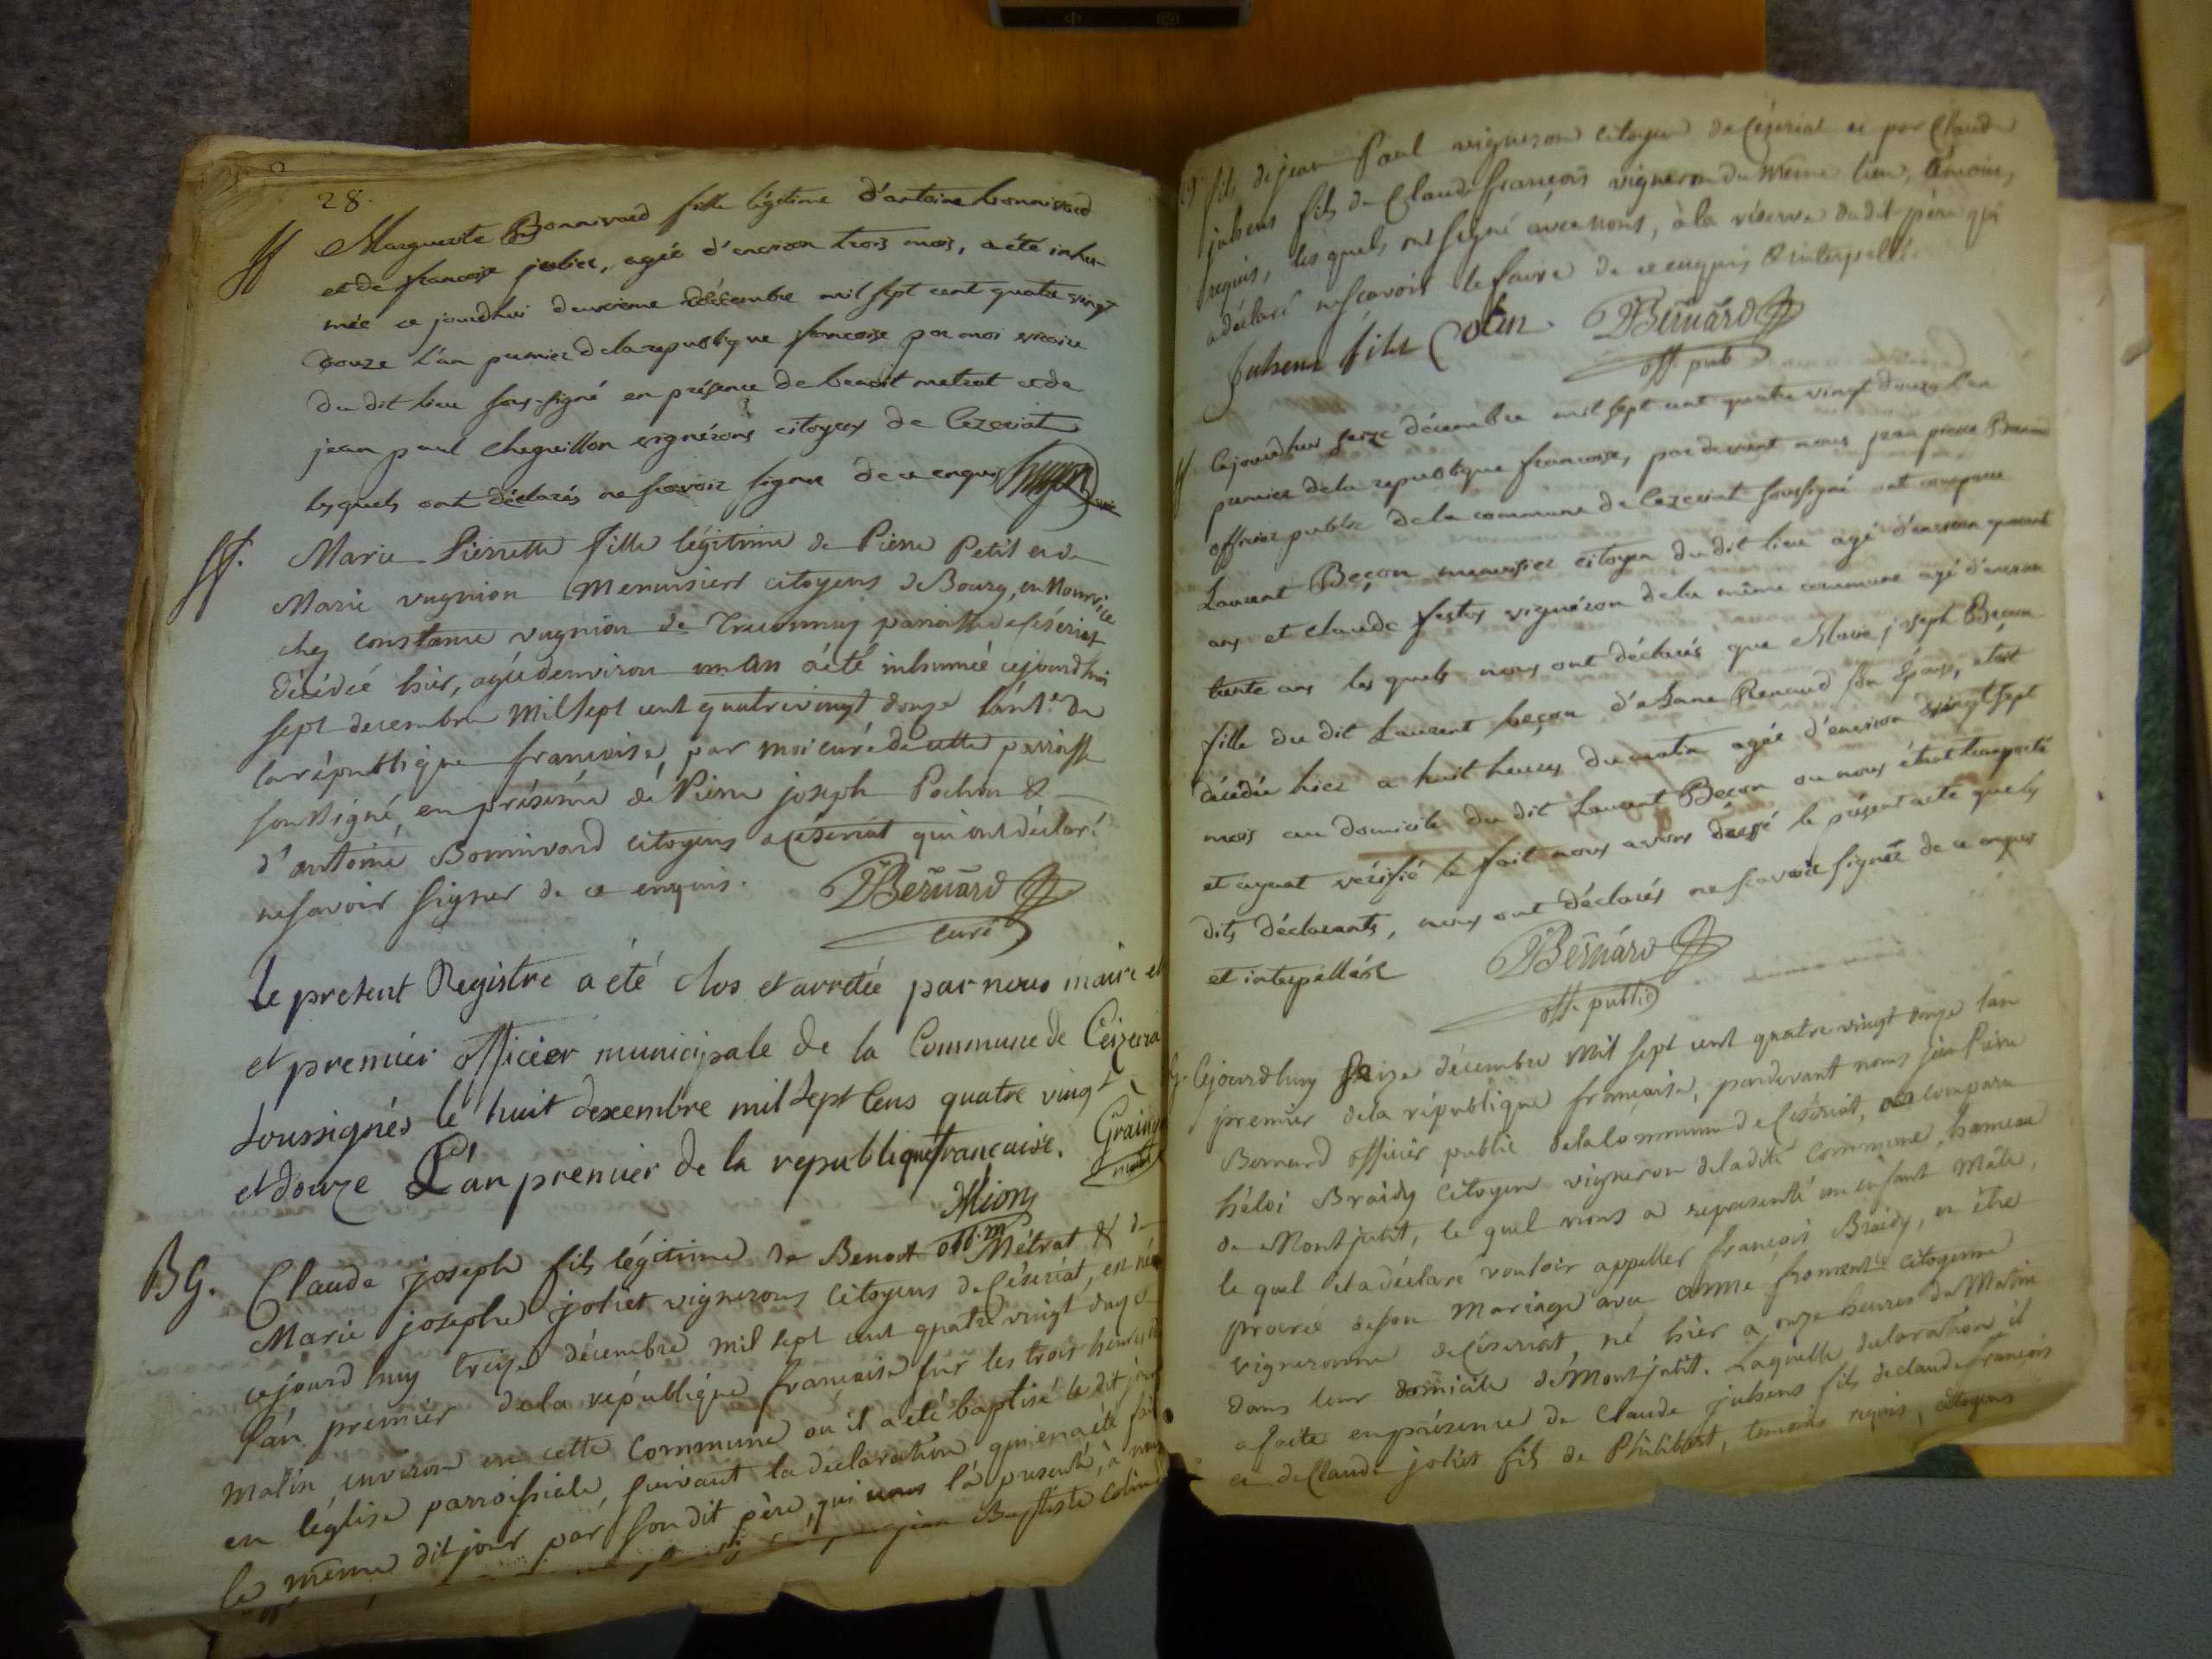 28.
ff Marguerite Bonnivard fille légitime d'antoine bonnivard
et de francoise jolier, agée d'environ trois mois, a été inhu-
mée ce jourdhui deuxieme décembre mil sept cent quatre vingt
douze l'an premier de la republique francoise par moi vicaire
du dit lieu sous-signé en présence de benoit metrat et de
jean paul Chequillon vignérons citoyens de Cezeriat
lesquels ont déclarés ne scavoir signer de ce enquis
ff. Marie Pierrette fille légitime de Pierre Petit et de
Marie vugnion Menuisiers citoyens de Bourg, en Nourrice
chez constance vugnion de parroisse de Céseriat
décédée hier, agée denviron un an a été inhumée cejourdhui
sept decembre Mil sept cent quatrevingt douze l'an 1er de
la république francaise, par moi curé de cette parroisse
soussigné, en présence de Pierre joseph Pochon &
d'antoine Bonnivard citoyens a Céseriat qui ont déclaré
ne savoir signer de ce enquis. Bernard
curé
Le present Registre a été clos et arretée par nous maire et
et premier officier municipale de la Commune de Ceizeria
soussignés le huit dexembre mil sept Cens quatre vingt
et douze L'an premier de la republique francaise.
Mion
off. m
BG. Claude joseph fils légitime de Benoit Métrat & de
Marie josephe joliet vignerons citoyens de Céseriat, est né
cejourd huy treize décembre mil sept cent quatre vingt douze
l'an premier de la république francaise sur les trois heures du
matin environ en cette Commune où il a été baptisé le dit jour
en l'église parroissiale, suivant la déclaration qui en a été faite
le même dit jour par son dit père, qui nous l'a presenté, à nous
jean Baptiste Colin
29 fils de jean Paul vigneron citoyen de Céseriat et par Claude
julsens fils de Claude françois vigneron du Même lieu, témoins
requis, lesquels ont signé avec nous, à la réserve du dit père qui
a déclaré ne scavoir le faire de ce enquis & interpellé.
julsens fils Colin Bernard
off. pub
ff Cejourdhui seize décembre mil sept cent quatre vingt douze l'an
premier de la republique francoise, par devant nous jean pierre Bernard
officier public de la commune de Cezeriat soussigné ont comparu
Laurent Beçon menuisier citoyen du dit lieu agé d'environ quarante
ans et Claude festas vignéron de la même commune agé d'environ
trente ans les quels nous ont déclarés que Marie joseph Becon
fille du dit Laurent beçon d'a Jane Renaud son Épouse, étoit
décédée hier a huit heures du matin agée d'environ vingt sept
mois au domicile du dit Laurent Beçon ou nous étant transporté
et ayant vérifié le fait nous avons dressé le présent acte que les
dits déclarants, nous ont déclarés ne scavoir signer de ce enquis
et interpellés Bernard
off. public
Cejourdhuy seize décembre Mil sept cent quatre vingt douze l'an
premier de la république francaise, pardevant nous jean Pierre
Bernard officier public de la Commune de Céseriat, est comparu
héloi Braidy Citoyen vigneron de la dite Commune, hameau
de Montjutit, le quel nous a representé un enfant Mâle,
le quel il a déclaré vouloir appeller françois Braidy, et être
procréé de son Mariage avec anne froment citoyenne
vigneronne de Céseriat, né hier a onze heures du Matin
dans leur domicile de Montjutit. Laquelle declaration il
a faite en présence de Claude julsens fils de claude françois
et de Claude joliet fils de Philibert, temoins requis, citoyens